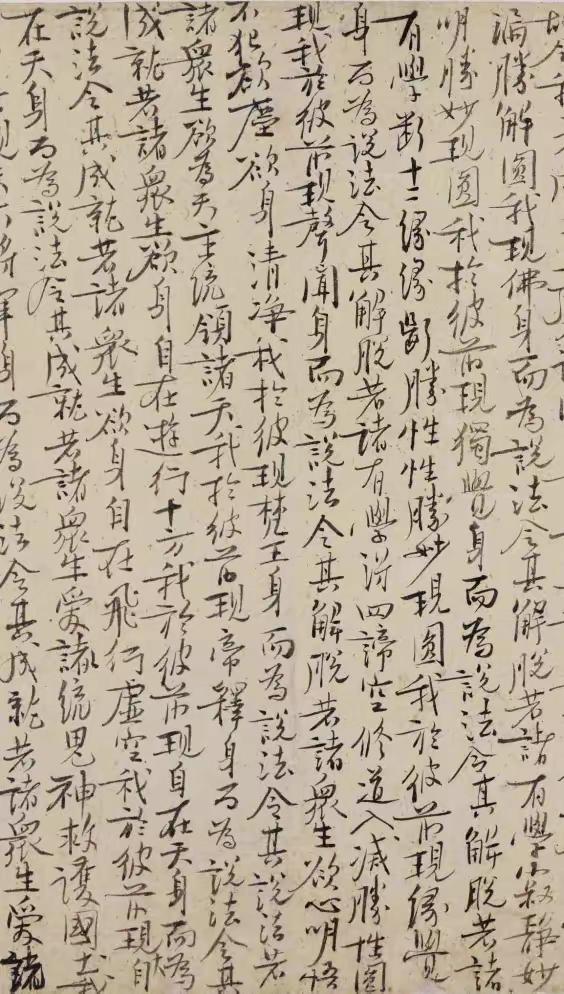 漏勝解圓我現佛身而為說法令其解脫若諸有學寂靜妙
明勝妙現圓我於彼前現獨覺身而為說法令其解脫若諸
有學斷十二緣緣斷勝性性勝妙現圓我於彼前現緣覺
身而為說法令其解脫若諸有學得四諦空修道入滅勝性圓
現我於彼前現聲聞身而為說法令其解脫若諸眾生欲心明悟
不犯欲塵欲身清淨我於彼現梵王身而為說法令其說法若
諸眾生欲為天主統領諸天我於彼前現帝釋身而為說法令其
成就若諸眾生欲身自在遊行十方我於彼前現自在天身而為
說法令其成就若諸眾生欲身自在飛行虛空我於彼前現自
在天身而為說法令其成就若諸眾生愛諸統鬼神救護國土我
現天大將軍身而為說法令其成就若諸眾生愛諸